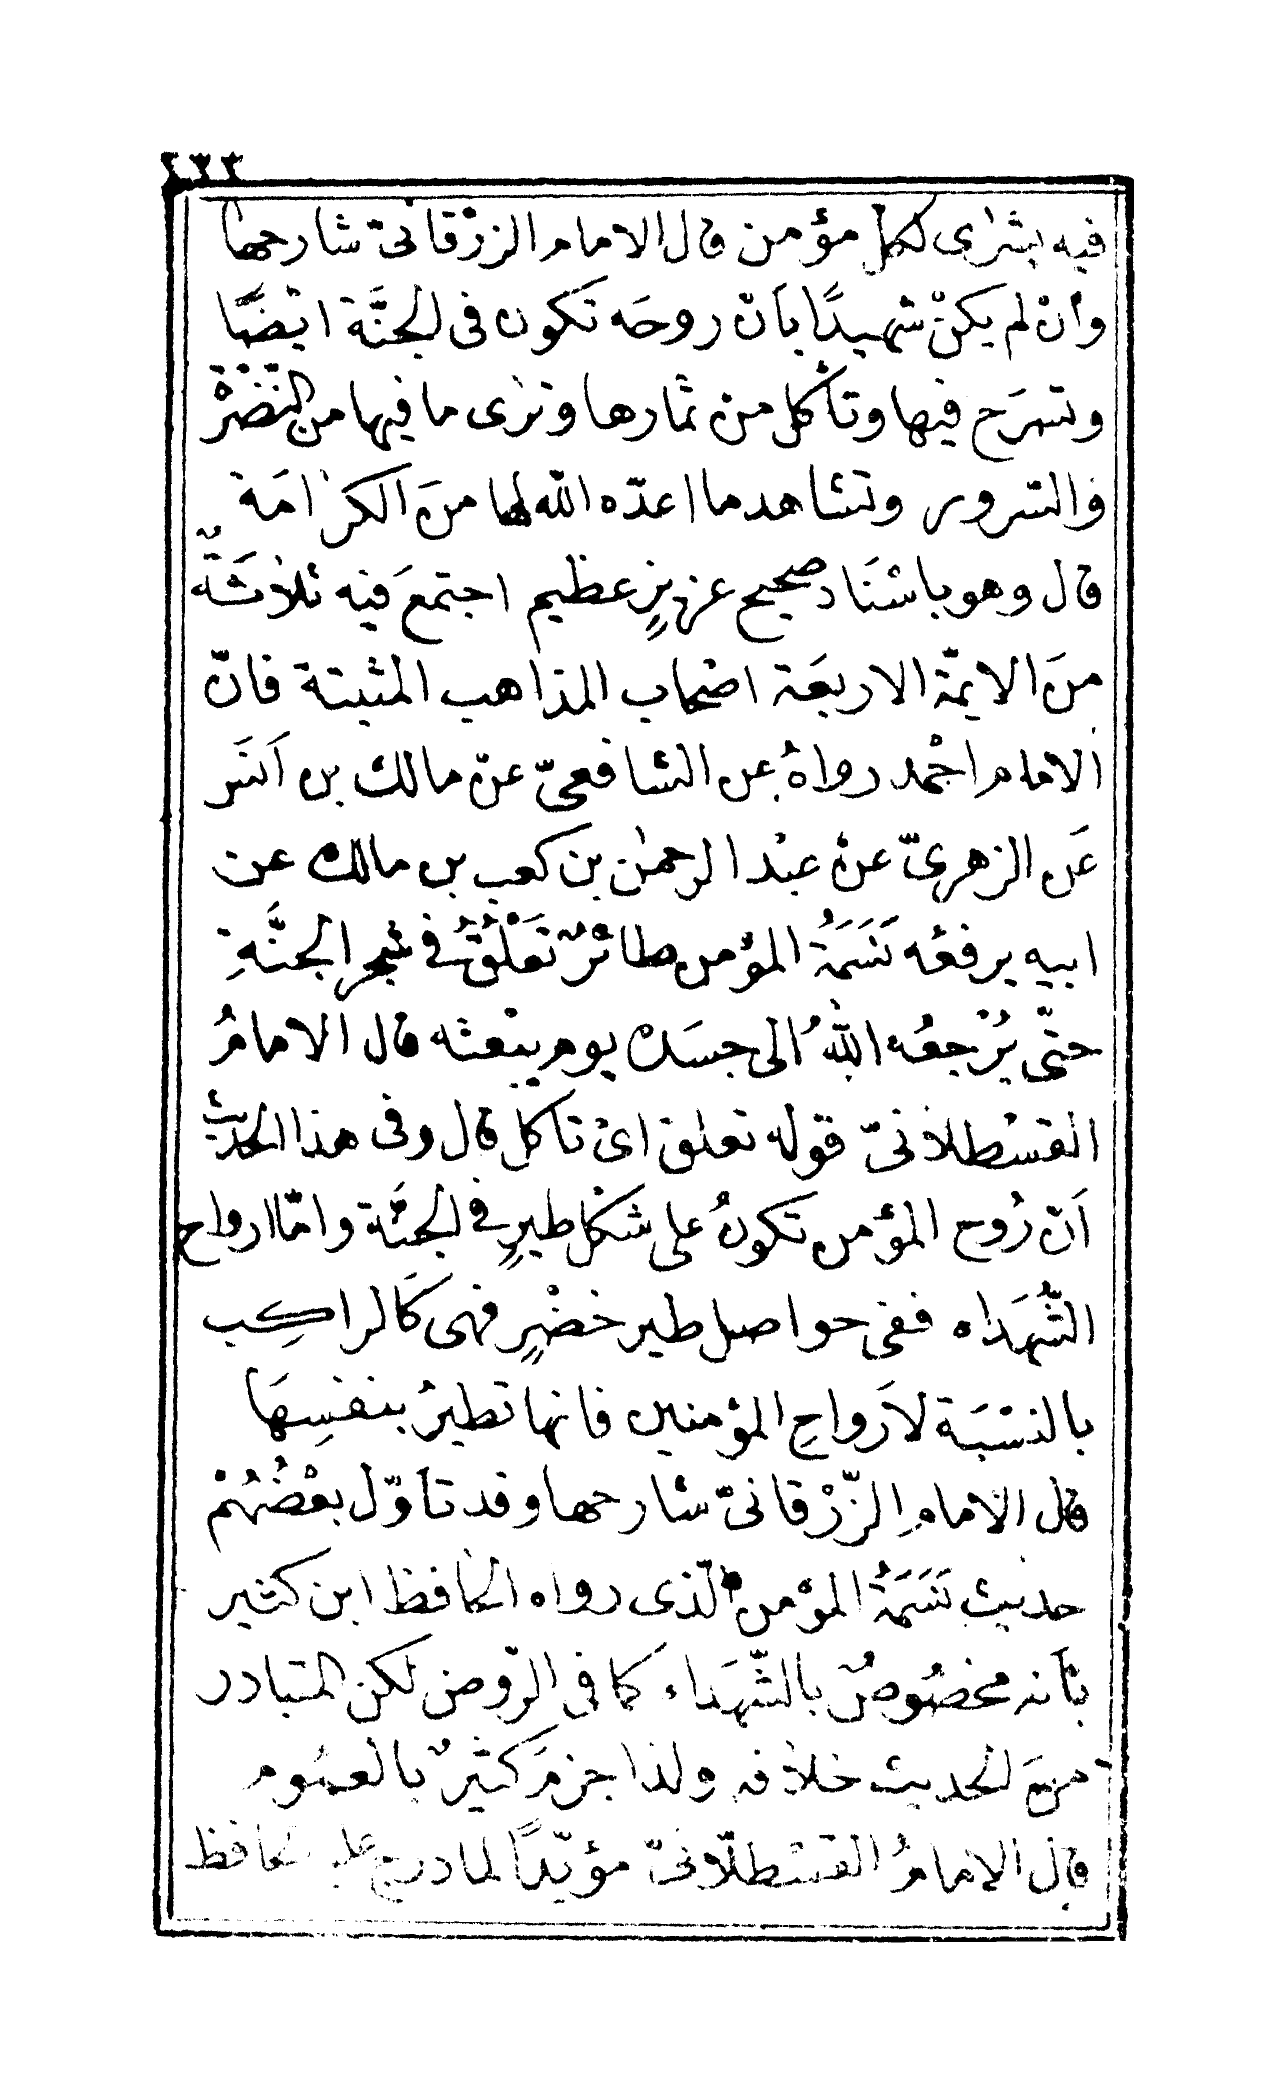 ٢٣٣
فيه بشرى لكل مؤمن قال الامام الزرْقانىّ شارحها
وأنْ لم يكنْ شهيدًا بأنّ روحَه تكون فى الجنَّة ايْضًا
وتسرَح فيها وتأكل منْ ثمارها وترٰى ما فيها من النّضْرْة
والسّرور وتشاهد ما اعدّه اللّه لها منَ الكرٰامَة
قال وهو باسْنَاد صحيح عزيزٍ عظيم اجتمعَ فيه ثلاثَةٌ
منَ الايمّة الاربعَة اصْحاب المذاهب المثبتة فانّ
الامام احْمد رواهُ عن الشافعىّ عنْ مالك بن اَنَس
عَن الزهرىّ عنْ عبْد الرحمٰن بن كعب بن مالك عن
ابيه يرفعُه نَسَمَةُ المؤمن طائْرٌ تَعْلُقُ فى شجر الجنَّةِ
حتّى يُرْجعُه اللّٰهُ الى جسَده يوم يبْعثه قال الامامُ
القسْطلانىّ قوله تعلق اىْ تاكل قال وفى هذا الحديث
اَنّ رُوح المؤمن تكونُ على شكْل طيرٍ فى الجنَّة وامّا ارواح
الشُّهَداء ففى حواصل طير خضْرٍ فهى كَالراكِب
بالنسْبَة لاَرواحِ المؤمنين فانها تطيرُ بنفسِهَا
قال الامامِ الزّرْقانىّ شارحها وقد تأوّل بعْضُهُمْ
حديث نَسَمَةُ المؤمن الّذى رواه الحافظ ابن كثير
بأنه مخصُوصٌ بالشّهَداء كما فى الرّوض لكن المتبادر
منَ الحديث خلافه ولذا جزمَ كثيرٌ بالعمُوم
قال الامامُ القسْطلّانىّ مؤيّدًا لما درج عليه الحافظ